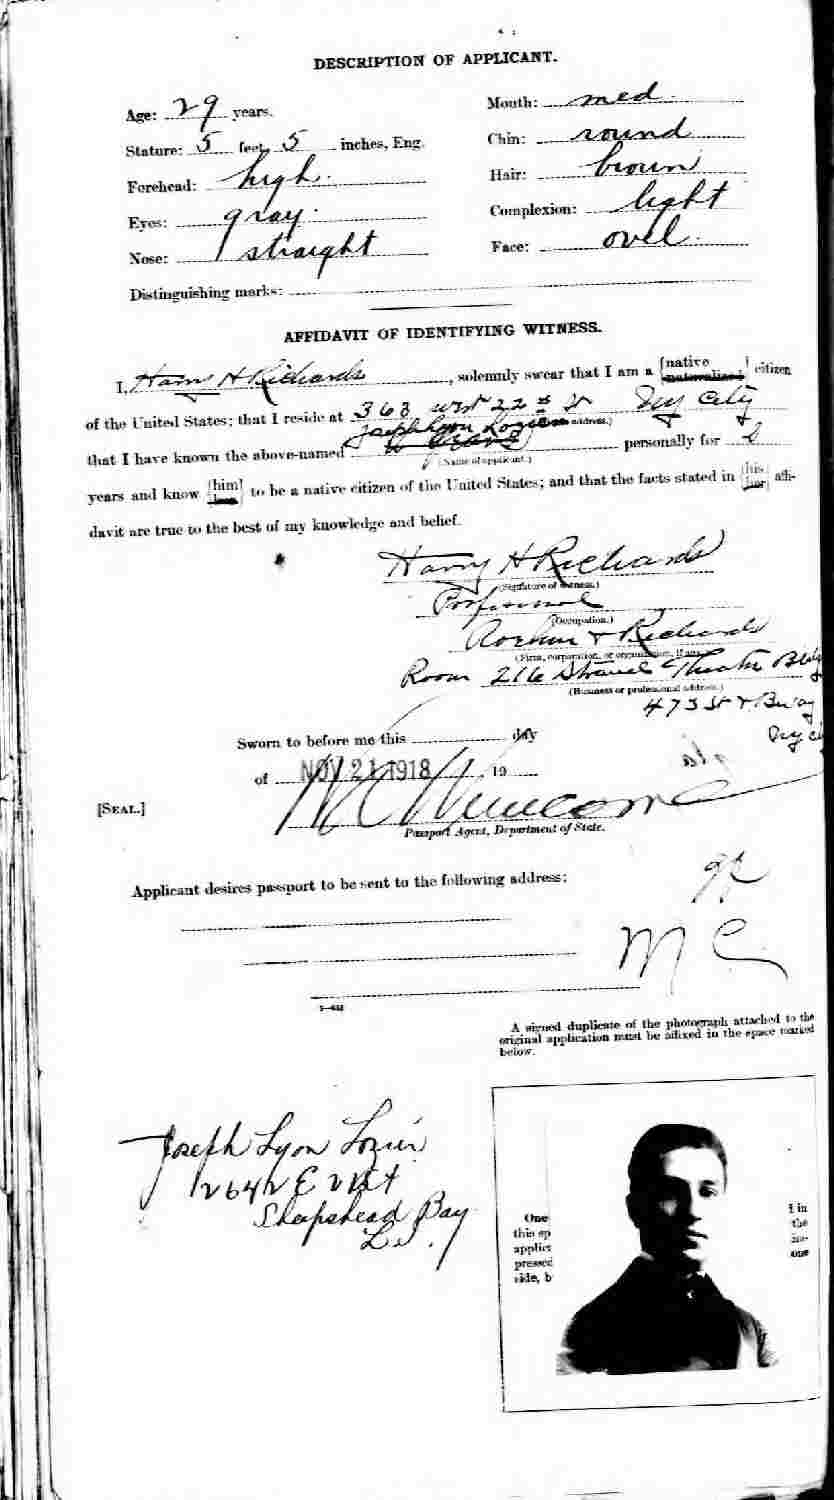 DESCRIPTION OF APPLICANT.
Age: 29 years.
Stature: 5 feet, 5 inches, Eng.
Forehead: high.
Eyes: gray.
Nose: straight
Mouth: med.
Chin: round
Hair: brown
Complexion: light
Face: ovel.
Distinguishing marks:
AFFIDAVIT OF IDENTIFYING WITNESS.
I, Harry H Richards, solemnly swear that I am a {native naturalized} citizen
of the United States; that I reside at 363 West 22nd St Ny City
that I have known the above-named Joseph Lyon Lozier personally for 2
(Name of applicant.)
years and know {him her} to be a native citizen of the United States; and that the facts stated in {his her} affi-
davit are true to the best of my knowledge and belief.
Harry H Richards
(Signature of witness.)
Professional
(Occupation.)
& Richards
(Firm, corporation, or organization, if any.)
Room 216 Strand Theatre Bldg
(Business or professional address.)
47 St & Bway
Ny City
Sworn to before me this day
of NOV 21 1918 19
[SEAL.]
Passport Agent, Department of State.
Applicant desires passport to be sent to the following address:
M C
A signed duplicate of the photograph attached to the
original application must be affixed in the space marked
below.
Joseph Lyon Lozier
2642 E 21st
Sheepshead Bay
L.I.
One
this sp
applica
pressed
side, b
the
one